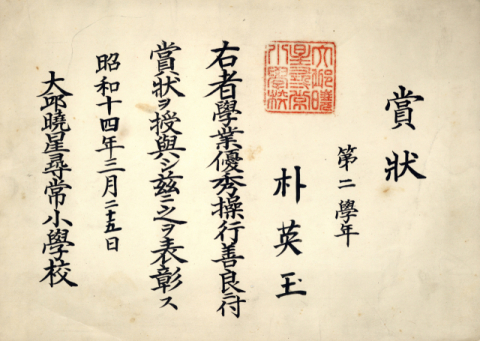 賞狀
第二學年
朴英玉
右者學業優秀操行善良ニ付
賞狀ヲ授與シ茲ニ之ヲ表彰ス
昭和十四年三月二十五日
大邱曉星尋常小學校